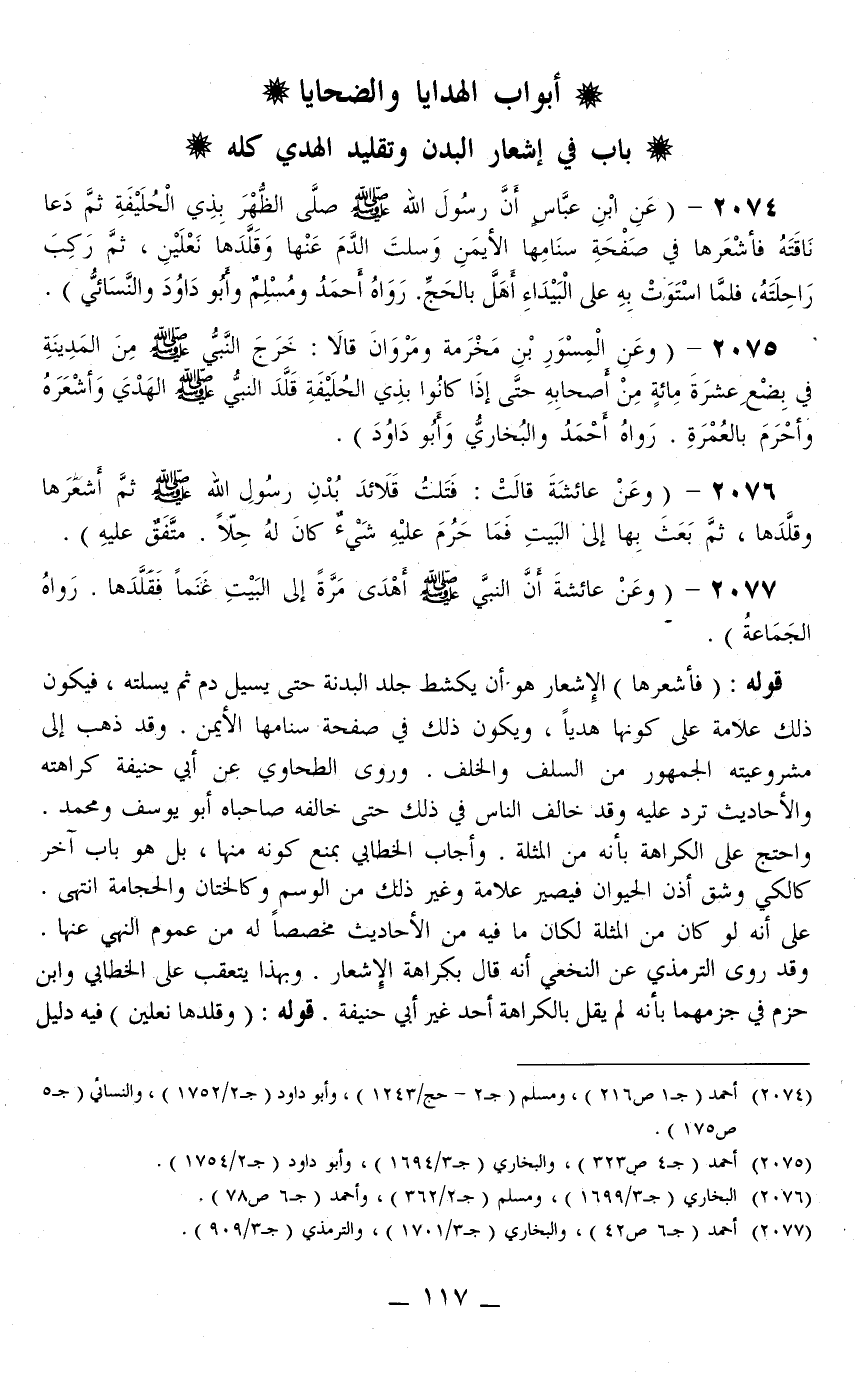 ❋ أبواب الهدايا والضحايا ❋
❋ باب في إشعار البدن وتقليد الهدي كله ❋
٢٠٧٤ – ( عَنِ ابْنِ عبَّاسٍ أَنَّ رسُولَ الله ﷺ صلَّى الظُّهْرَ بِذِي الْحُلَيْفَةِ ثمَّ دَعا
نَاقَتَهُ فأشْعَرها في صَفْحَةِ سنَامِها الأيمَنِ وَسلتَ الدَّمَ عَنْها وَقَلَّدَها نَعْلَيْنِ ، ثمَّ رَكِبَ
رَاحِلَتَهُ، فلمَّا اسْتَوَتْ بِهِ على الْبَيْدَاءِ أَهَلَّ بالحَجِّ. رَوَاهُ أَحمَدُ ومُسْلِمٌ وأَبُو دَاوُدَ والنَّسَائيُّ ) .
٢٠٧٥ – ( وعَنِ الْمِسْوَرِ بْنِ مَخْرَمة ومَرْوَانَ قالَا : خَرَجَ النَّبيُّ ﷺ مِنَ المَدِينَةِ
في بِضْعِ عشرَةَ مِائةٍ مِنْ أَصحابِهِ حتَّى إذَا كانُوا بِذِي الحُلَيْفَةِ قَلَّدَ النبيُّ ﷺ الهَدْيَ وَأشْعَرَهُ
وأحْرَمَ بالعُمْرَةِ . رَواهُ أَحْمَدُ والبُخاريُّ وَأَبُو دَاوُدَ ) .
٢٠٧٦ – ( وعَنْ عائشةَ قالَتْ : فَتَلتُ قَلَائدَ بُدْنِ رسُولِ الله ﷺ ثمَّ أَشعَرَها
وقلَّدَها ، ثمَّ بَعَثَ بِها إلى البَيتِ فَمَا حَرُمَ عليْهِ شَيْءٌ كانَ لهُ حِلّاً . متَّفَقٌ عليهِ ) .
٢٠٧٧ – ( وعَنْ عائشةَ أَنَّ النبيَّ ﷺ أَهْدَى مَرَّةً إلى البَيْتِ غَنَماً فَقَلَّدَها . رَواهُ
الجَمَاعةُ ) .
قوله : ( فأشعرها ) الإِشعار هو أن يكشط جلد البدنة حتى يسيل دم ثم يسلته ، فيكون
ذلك علامة على كونها هدياً ، ويكون ذلك في صفحة سنامها الأيمن . وقد ذهب إلى
مشروعيته الجمهور من السلف والخلف . وروى الطحاوي عن أبي حنيفة كراهته
والأحاديث ترد عليه وقد خالف الناس في ذلك حتى خالفه صاحباه أبو يوسف ومحمد .
واحتج على الكراهة بأنه من المثلة . وأجاب الخطابي بمنع كونه منها ، بل هو باب آخر
كالكي وشق أذن الحيوان فيصير علامة وغير ذلك من الوسم وكالختان والحجامة انتهى .
على أنه لو كان من المثلة لكان ما فيه من الأحاديث مخصصاً له من عموم النهي عنها .
وقد روى الترمذي عن النخعي أنه قال بكراهة الإِشعار . وبهذا يتعقب على الخطابي وابن
حزم في جزمهما بأنه لم يقل بالكراهة أحد غير أبي حنيفة . قوله : ( وقلدها نعلين ) فيه دليل
(٢٠٧٤) أحمد ( جـ١ ص٢١٦ ) ، ومسلم ( جـ٢ – حج/١٢٤٣ ) ، وأبو داود ( جـ١٧٥٢/٢ ) ، والنسائي ( جـ٥
ص١٧٥ ) .
(٢٠٧٥) أحمد ( جـ٤ ص٣٢٣ ) ، والبخاري ( جـ١٦٩٤/٣ ) ، وأبو داود ( جـ١٧٥٤/٢ ) .
(٢٠٧٦) البخاري ( جـ١٦٩٩/٣ ) ، ومسلم ( جـ٣٦٢/٢ ) ، وأحمد ( جـ٦ ص٧٨ ) .
(٢٠٧٧) أحمد ( جـ٦ ص٤٢ ) ، والبخاري ( جـ١٧٠١/٣ ) ، والترمذي ( جـ٩٠٩/٣ ) .
– ١١٧ –